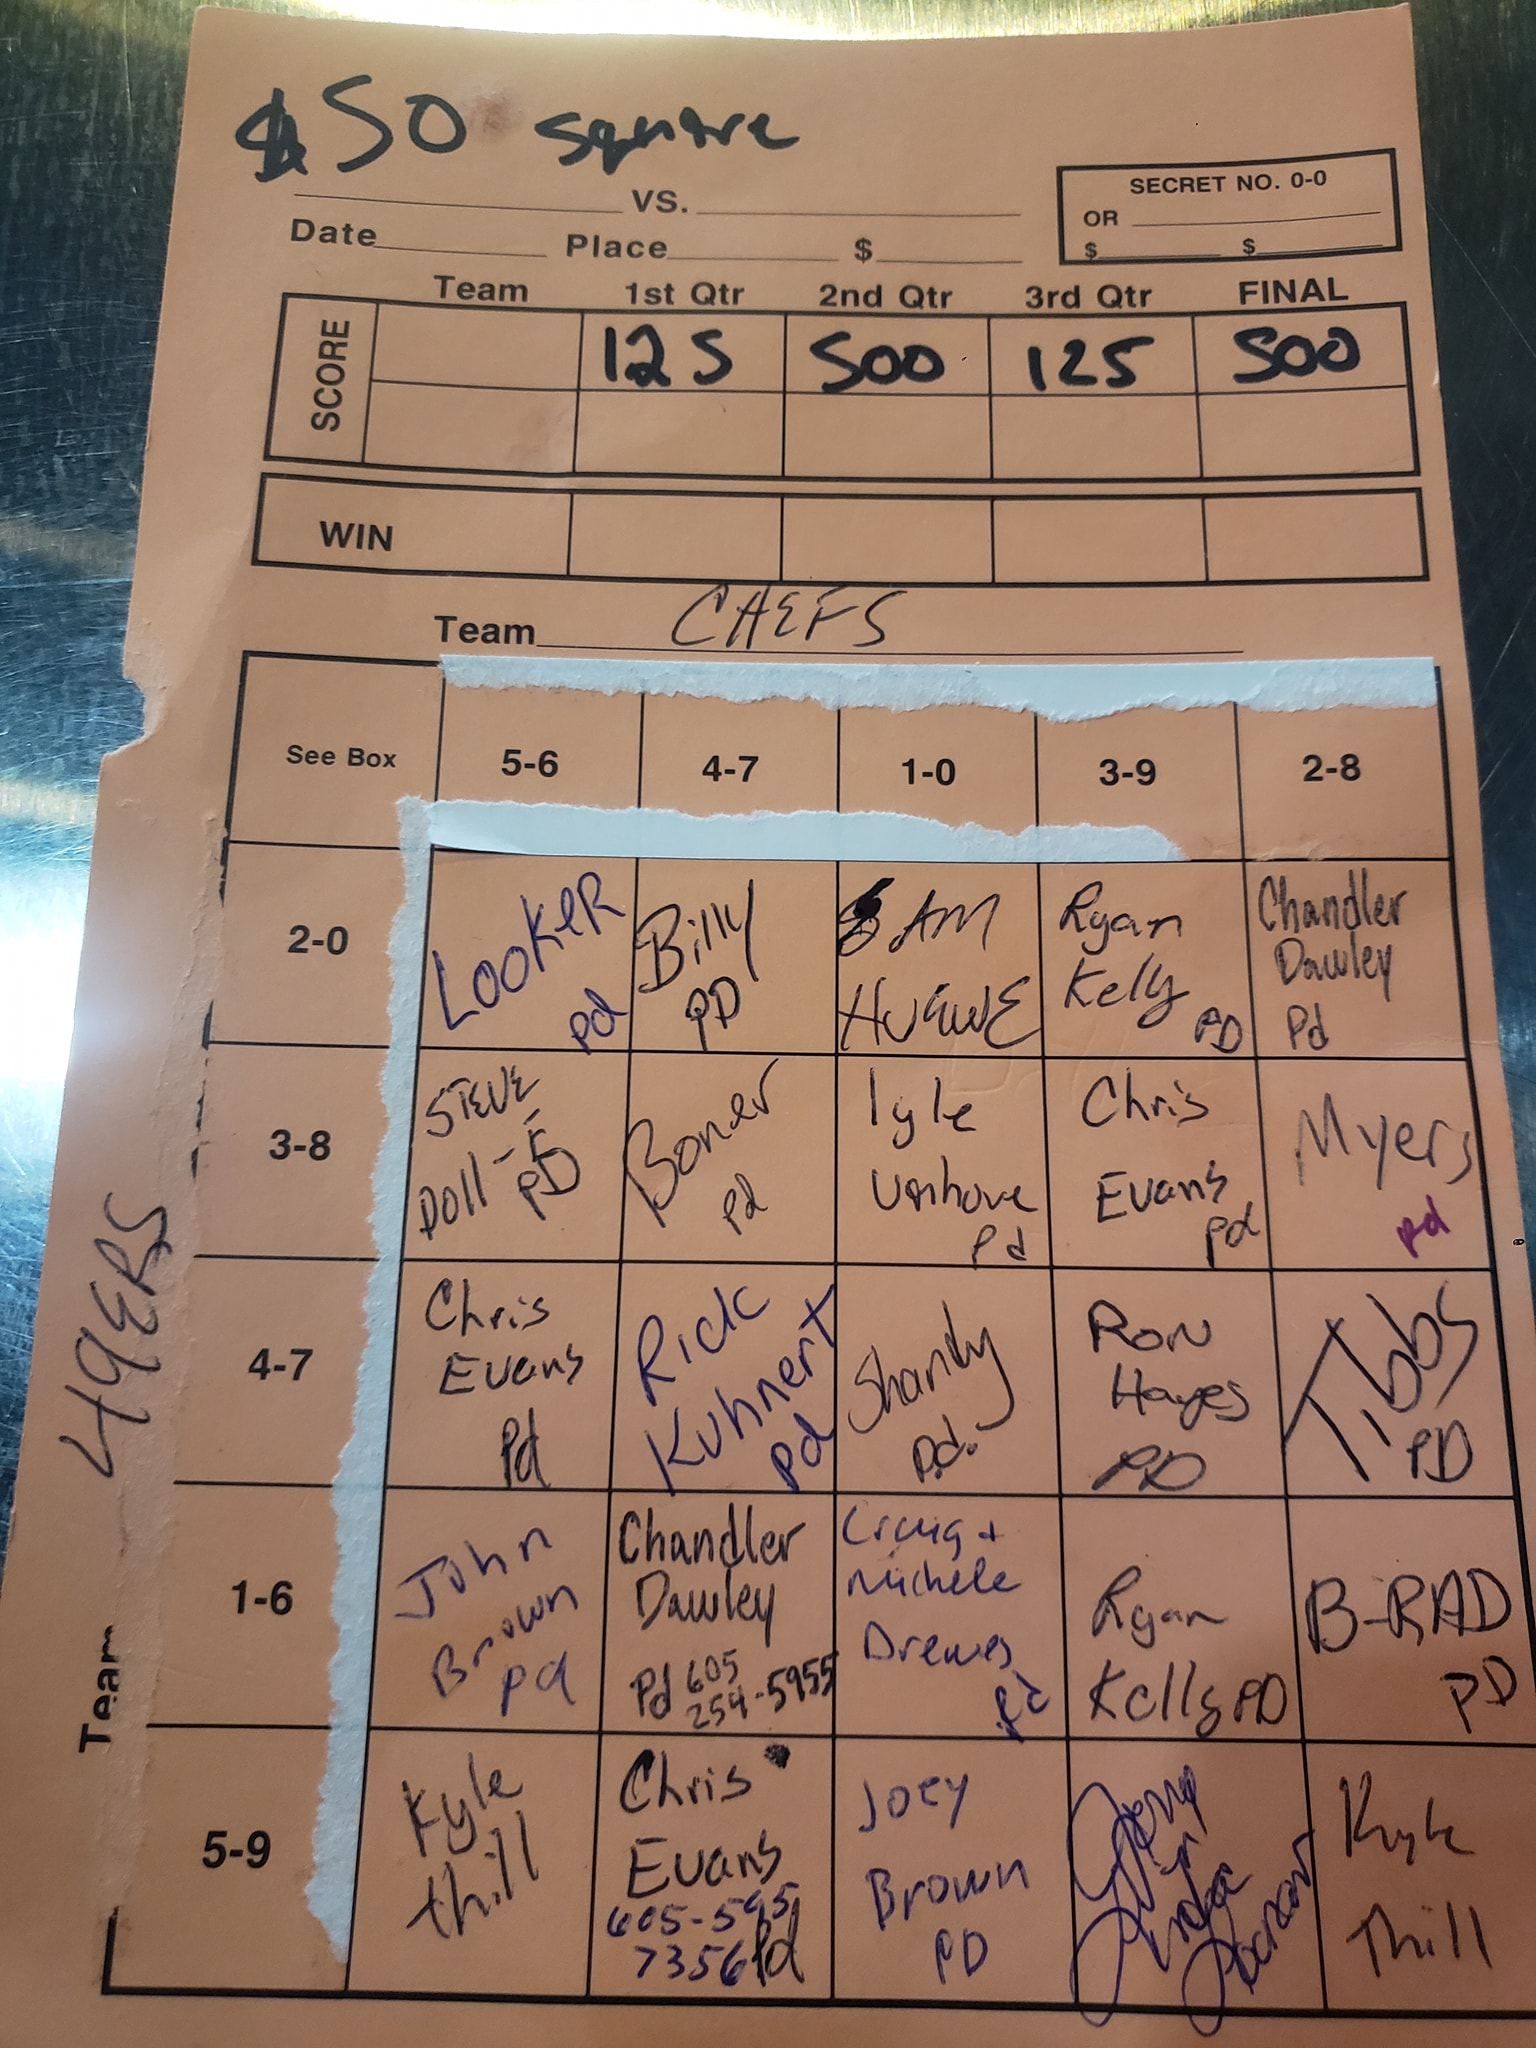 $50 square
VS.
SECRET NO. 0-0
OR
$ $
Date Place $
Team 1st Qtr 2nd Qtr 3rd Qtr FINAL
SCORE
125 500 125 500
WIN
Team CHEFS
See Box 5-6 4-7 1-0 3-9 2-8
2-0
LOOKER
pd
Billy
PD
SAM
HUEWE
Ryan
Kelly
PD
Chandler
Dawley
Pd
3-8
STEVE
Doll-E
PD
Boner
pd
lyle
Pd
Chris
Evans
pd
Myers
pd
4-7
Chris
Evans
Pd
Rick
Kuhnert
pd
Shandy
pd.
RON
Hayes
PD
Tibbs
PD
1-6
John
Brown
pd
Chandler
Dawley
Pd 605
254-5955
Craig +
Michele
Drewes
pd
Ryan
Kelly PD
B-RAD
PD
5-9
Kyle
thill
Chris
Evans
605-595
7356 Pd
Joey
Brown
PD
Kyle
Thill
Team 49ERS